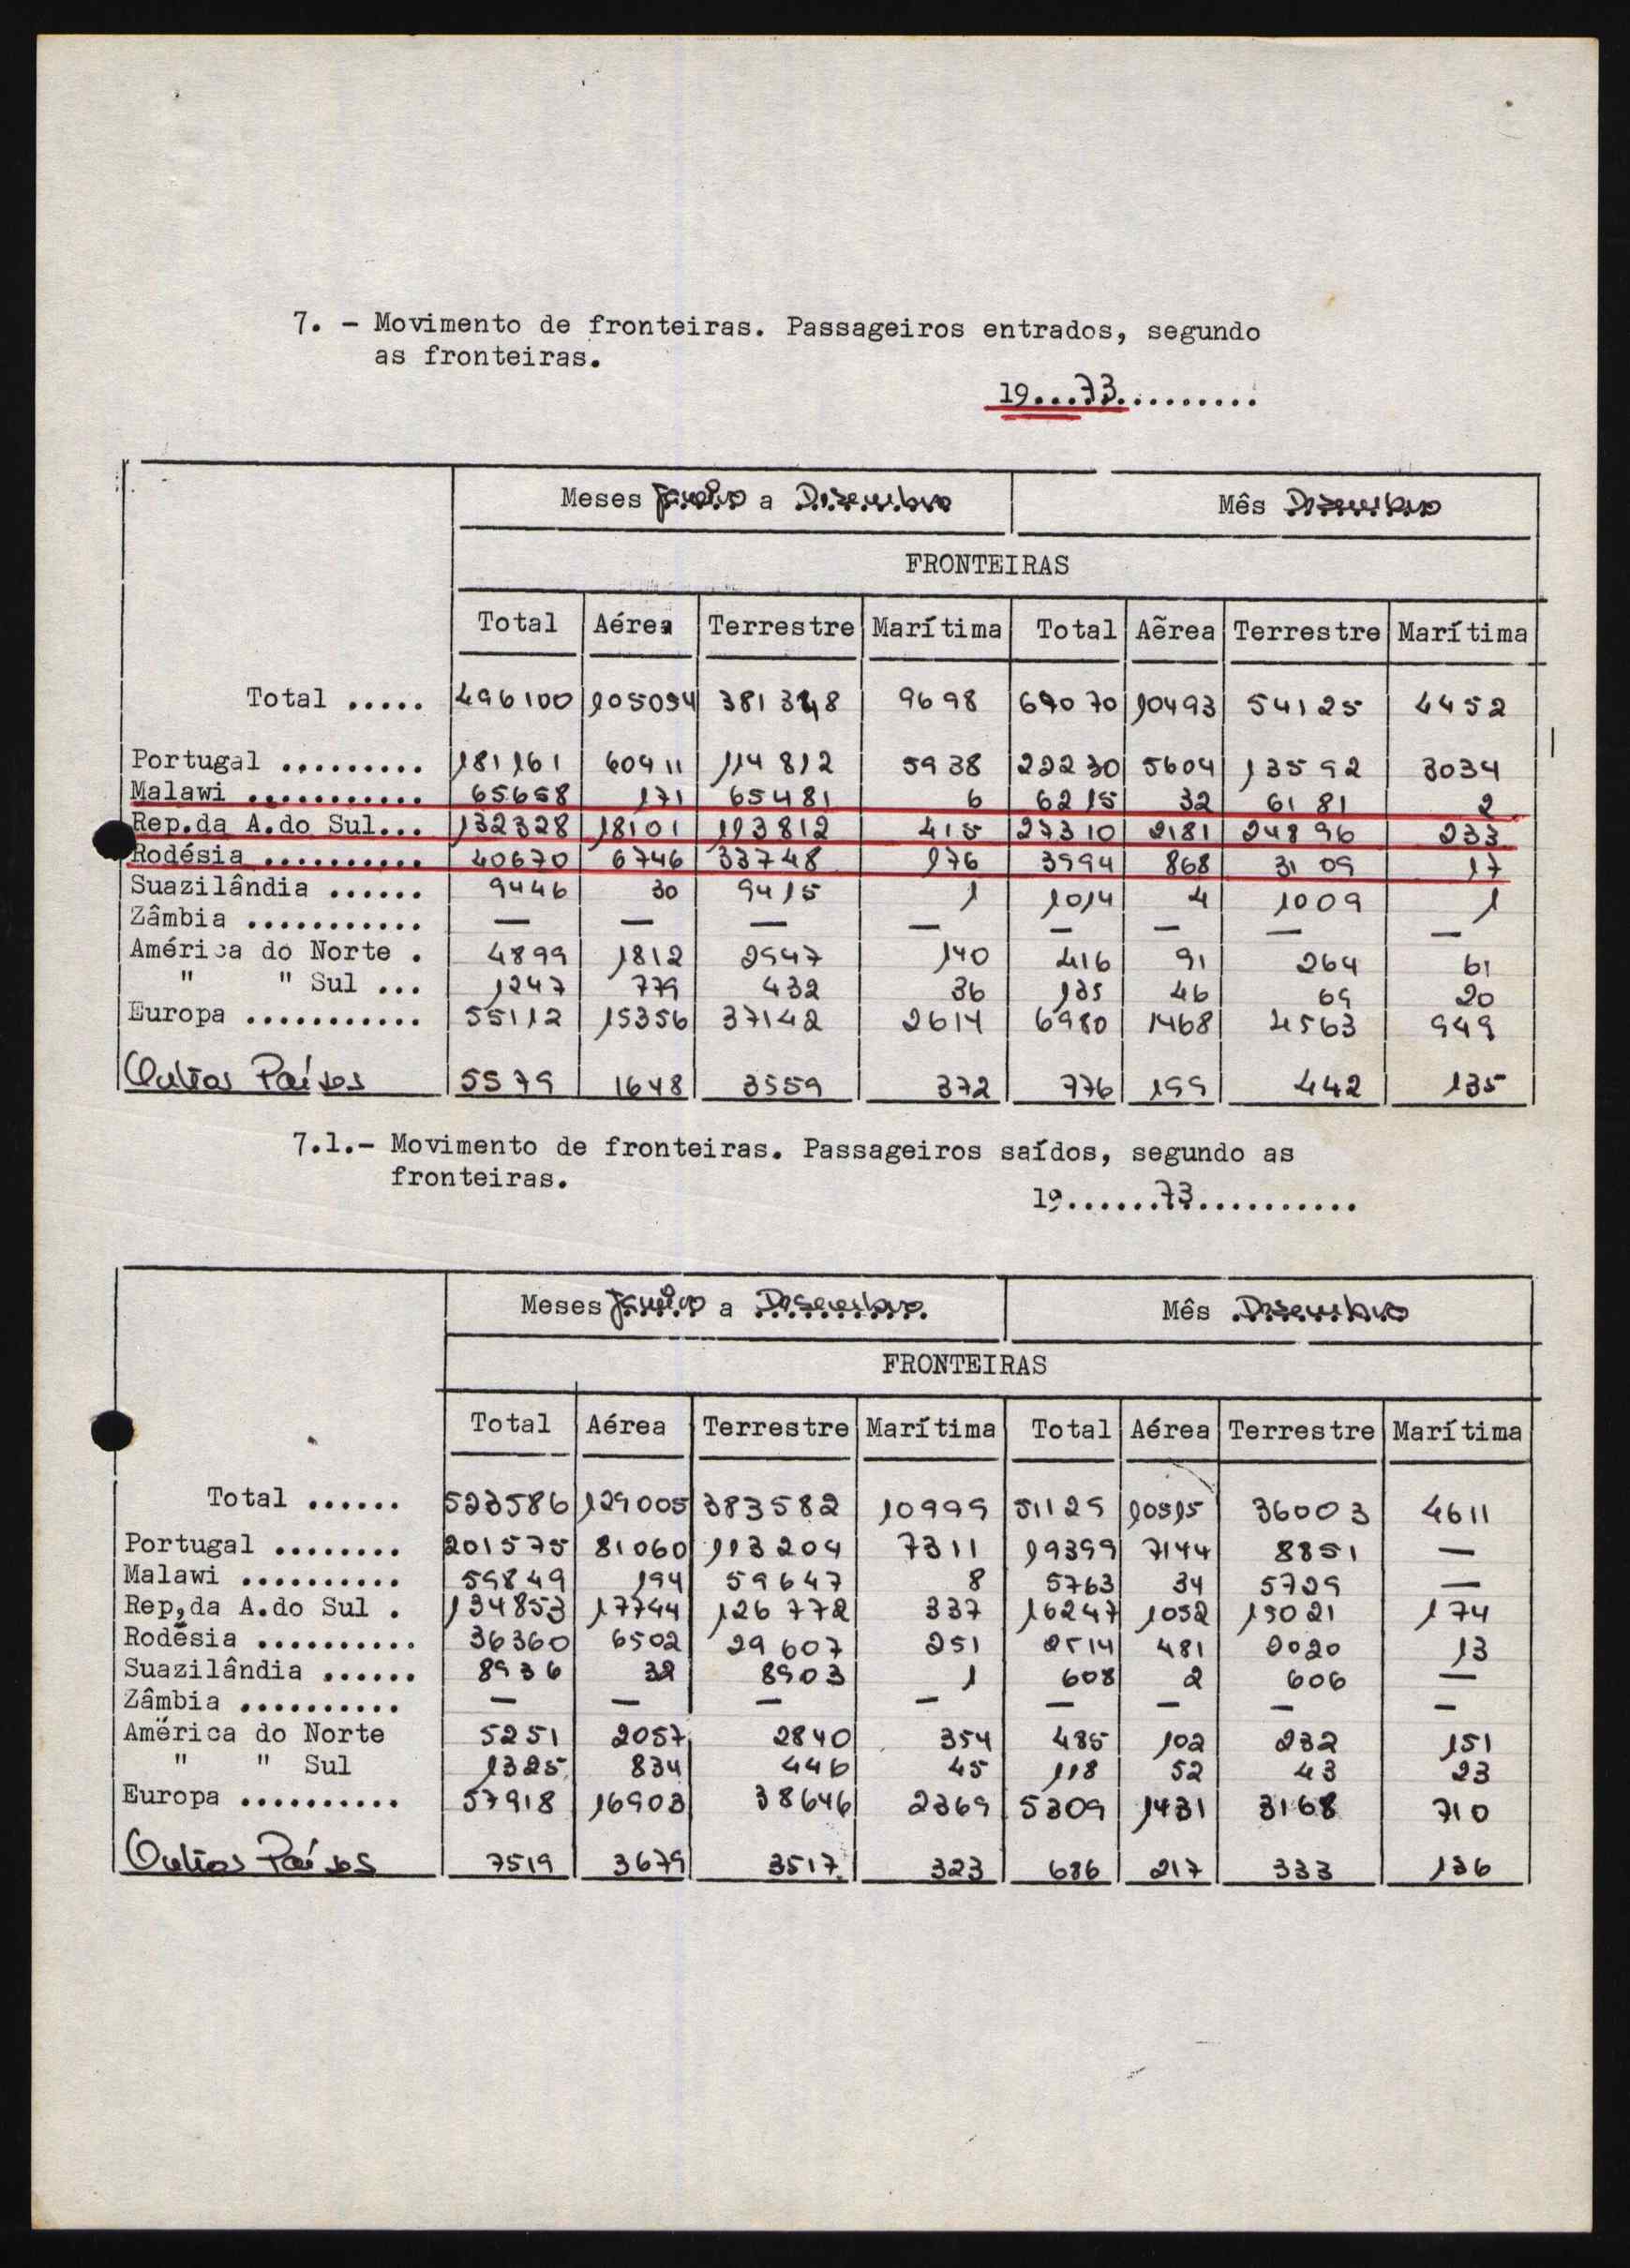 7. - Movimento de fronteiras. Passageiros entrados, segundo
as fronteiras.
19...73..........
Meses Janeiro a Dezembro Mês Dezembro
FRONTEIRAS
Total Aérea Terrestre Marítima Total Aẽrea Terrestre Marítima
Total ..... 496100 105054 381348 9698 69070 10493 54125 4452
Portugal ......... 181161 60411 114812 5938 22230 5604 13592 3034
Malawi ........... 65658 171 65481 6 6215 32 6181 2
Rep.da A.do Sul... 132328 18101 113812 415 27310 2181 24896 233
Rodésia .......... 40670 6746 33748 176 3994 868 3109 17
Suazilândia ...... 9446 30 9415 1 1014 4 1009 1
Zâmbia ........... — — — — — — — —
América do Norte . 4899 1812 2947 140 416 91 264 61
" " Sul ... 1247 779 432 36 135 46 69 20
Europa ........... 55112 15356 37142 2614 6980 1468 4563 949
Outros Países 5579 1648 3559 372 776 199 442 135
7.1.- Movimento de fronteiras. Passageiros saídos, segundo as
fronteiras.
19......73...........
Meses Janeiro a Dezembro Mês Dezembro
FRONTEIRAS
Total Aérea Terrestre Marítima Total Aérea Terrestre Marítima
Total ...... 523586 129005 383582 10999 51129 10515 36003 4611
Portugal ........ 201575 81060 113204 7311 19399 7144 8851 —
Malawi .......... 59849 194 59647 8 5763 34 5729 —
Rep,da A.do Sul . 134853 17744 126772 337 16247 1052 15021 174
Rodésia .......... 36360 6502 29607 251 2514 481 2020 13
Suazilândia ...... 8936 32 8903 1 608 2 606 —
Zâmbia .......... — — — — — — — —
América do Norte 5251 2057 2840 354 485 102 232 151
" " Sul 1325 834 446 45 118 52 43 23
Europa .......... 57918 16903 38646 2369 5309 1431 3168 710
Outros Países 7519 3679 3517 323 686 217 333 136